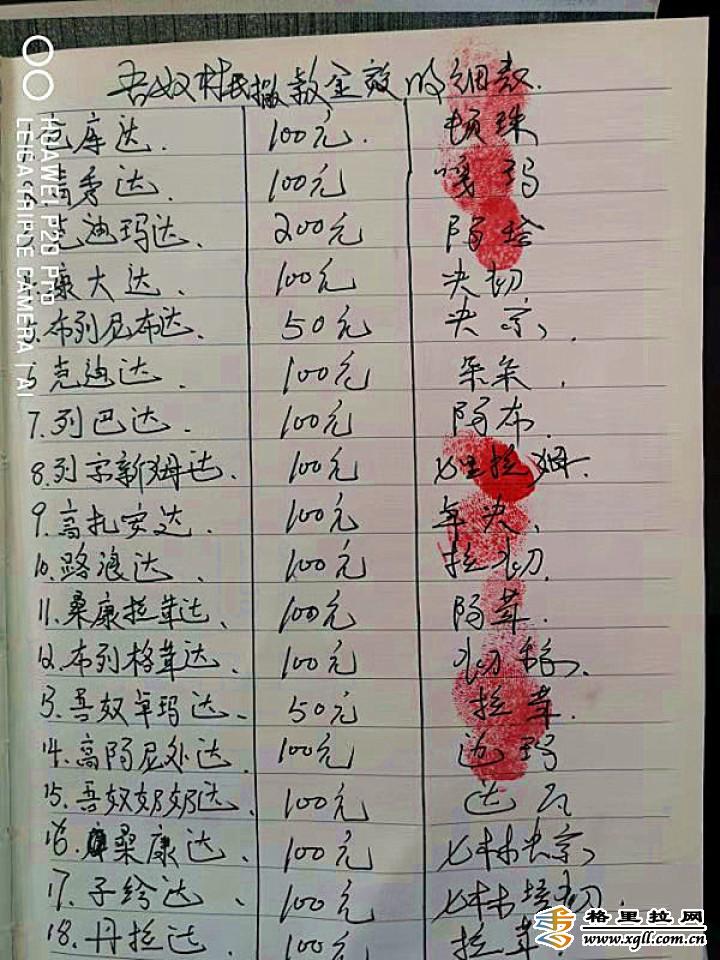 吾奴村民撒款金效的细数.
库达. 100元. 顿珠
2.高秀达. 100元 嘎玛
3.克迪玛达. 200元 阿培
4.康大达. 100元 央切
5.布列尼布达. 50元 央宗.
6.克迪达. 100元 朵朵.
7.列巴达. 100元 阿布.
8.列宗新姆达. 100元 七里拉姆.
9.高扎安达. 100元 年央.
10.路浪达. 100元 拉初.
11.桑康拉茸达. 100元 阿茸.
12.布列格茸达. 100元 初
13.吾奴卓玛达. 50元 拉茸.
14.高阿尼外达. 100元 边玛
15.吾奴奶奶达. 100元 达瓦
16.桑康达. 100元 七林央宗.
17.子给达. 100元 七林培初.
18.丹拉达. 100元 拉茸.
HUAWEI P20 Pro
LEICA TRIPLE CAMERA | AI
格里拉网
www.xgll.com.cn